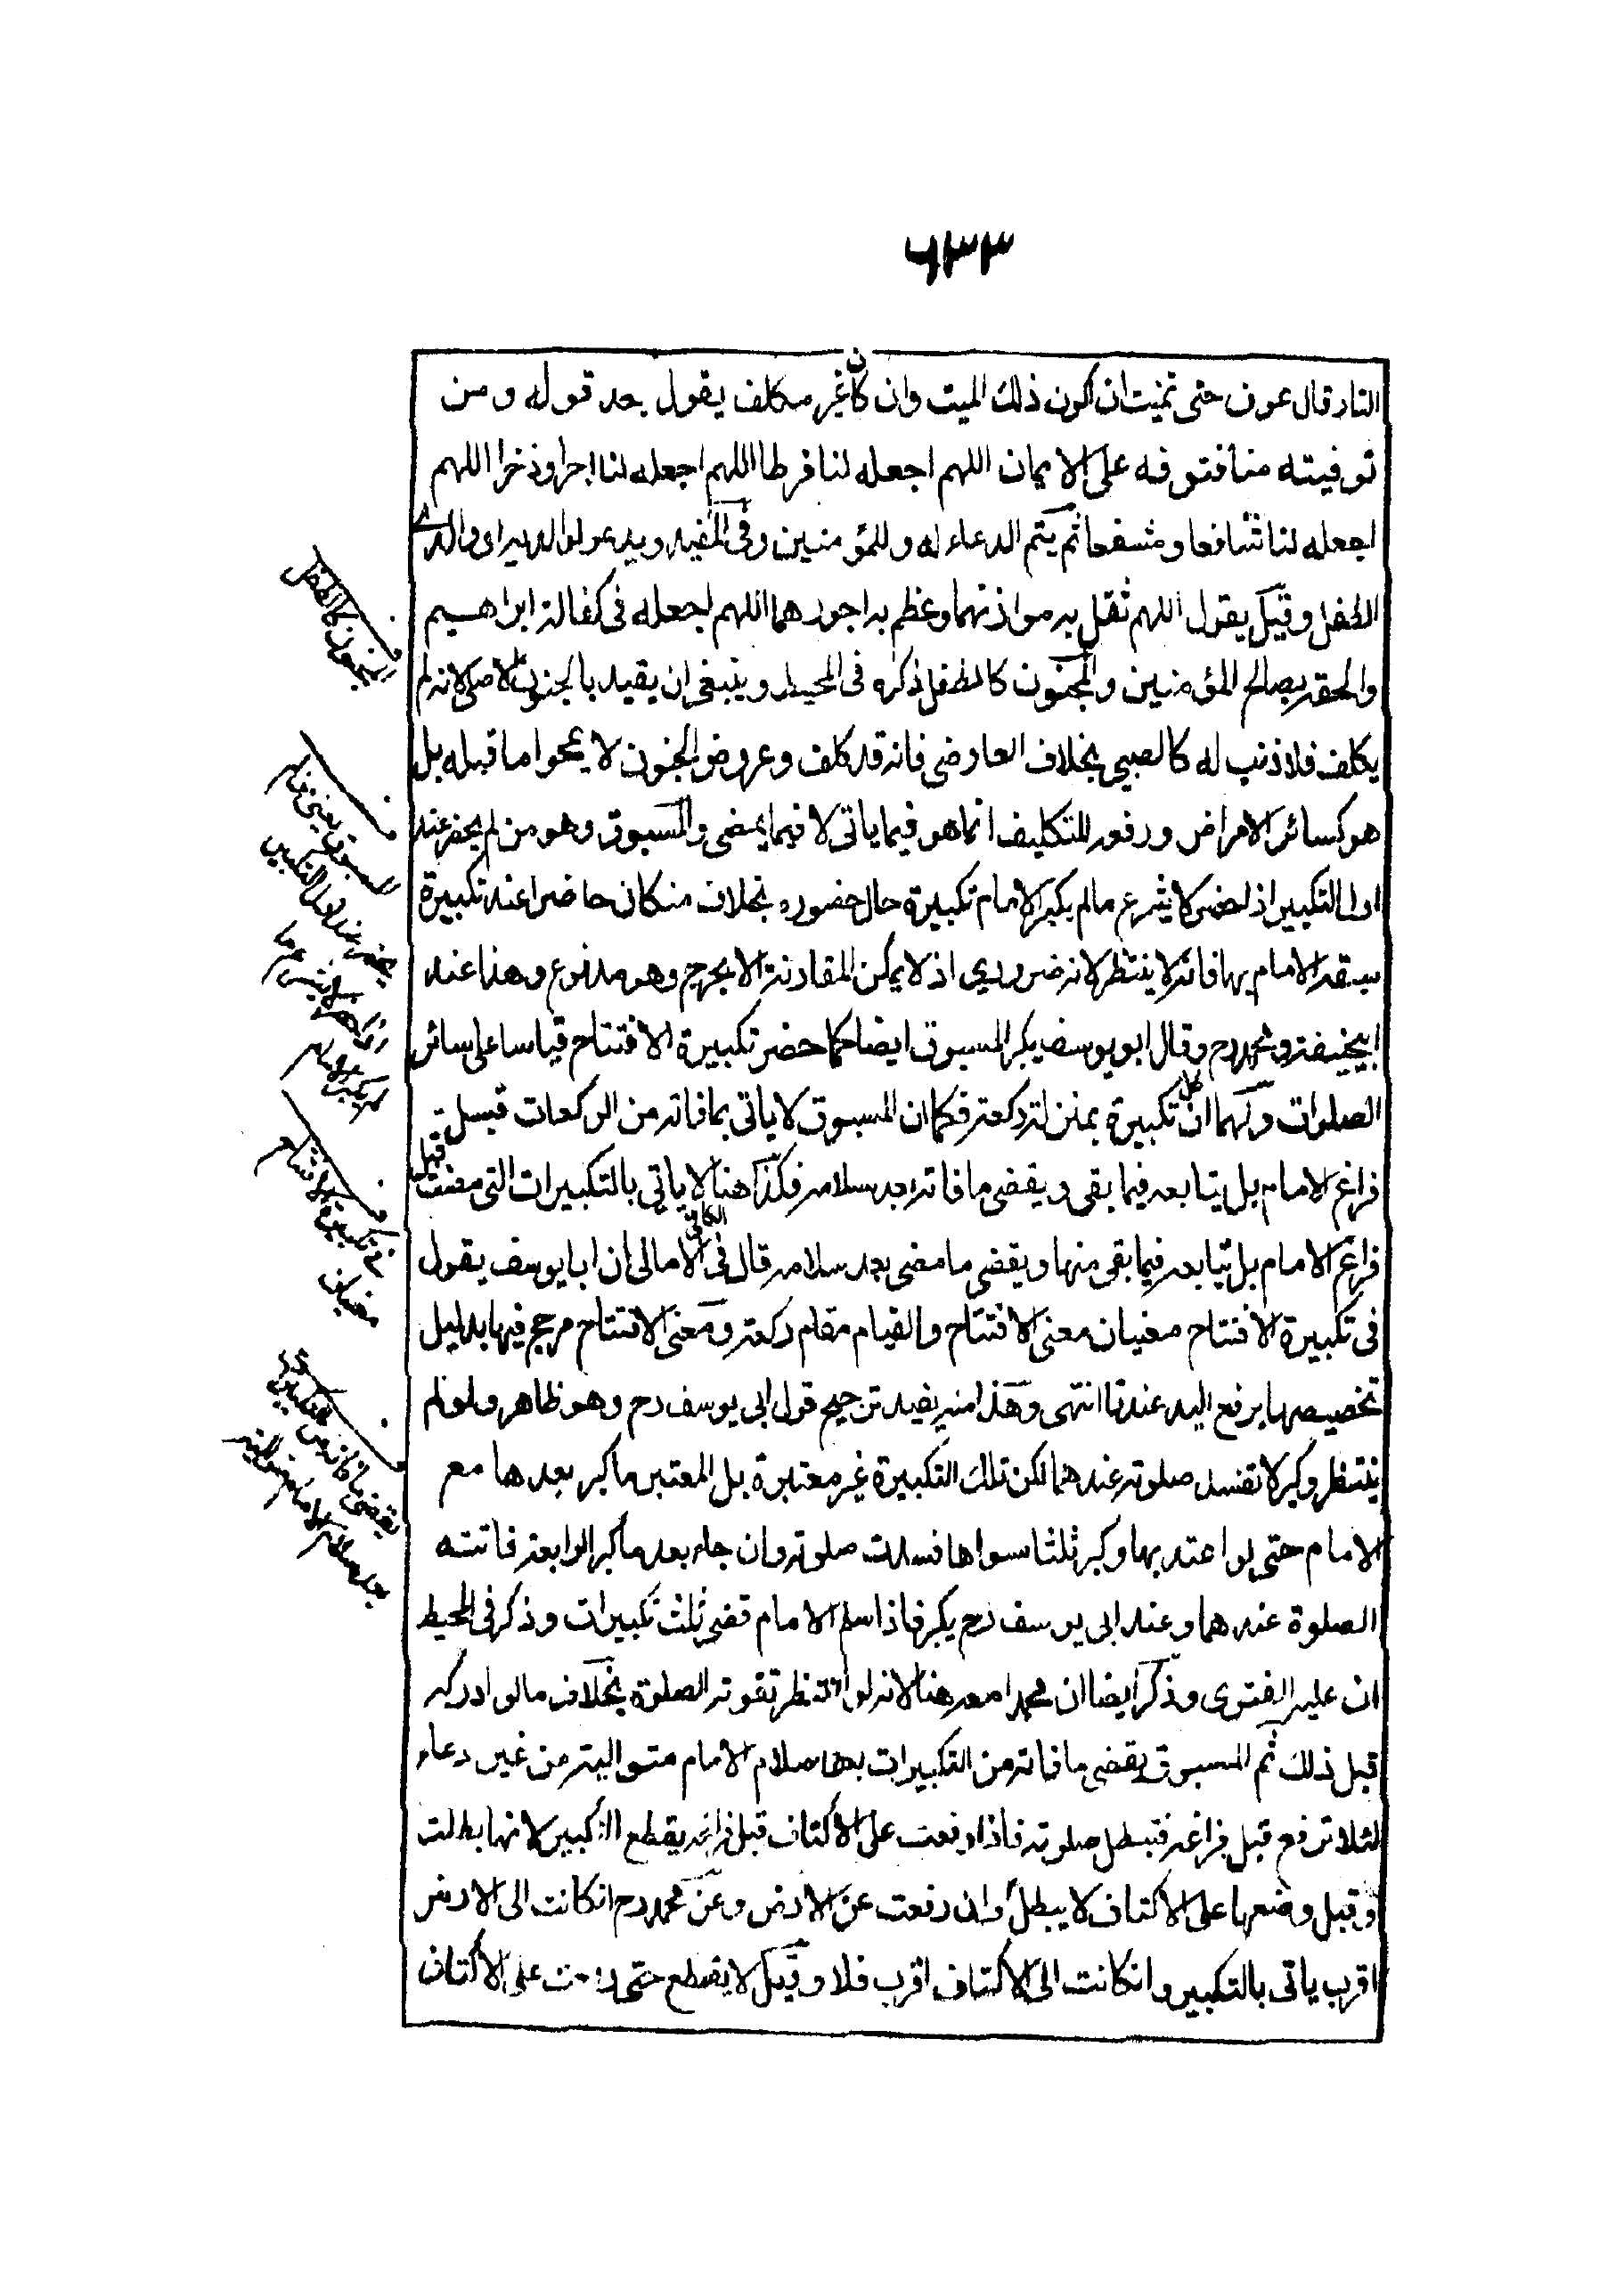 ٦٣٣
النار قال عوف حتى تمنيت ان اكون ذلك الميت وان كان غير مكلف يقول بعد قوله ومن
توفيته منا فتوفه على الايمان اللهم اجعله لنا فرطا اللهم اجعله لنا اجرا وذخرا اللهم
اجعله لنا شافعا ومشفعا ثم يتم الدعاء له وللمؤمنين وفى المفيد ويدعو لوالديه اى والدى
الطفل وقيل يقول اللهم ثقل به موازنهما وعظم به اجورهما اللهم اجعله فى كفالة ابراهيم
والحقه بصالح المؤمنين والمجنون كالطفل ذكره فى المحيط وينبغى ان يقيد بالجنون الاصلى لانه لم
يكلف فلا ذنب له كالصبى بخلاف العارضى فانه قد كلف وعروض الجنون لا يمحوا ما قبله بل
هو كسائر الامراض ورفعه للتكليف انما هو فيما ياتى لا فيما يمضى والمسبوق وهو من لم يحضر عند
اول التكبير اذا حضر لا يشرع ما لم يكبر الامام تكبيرة حال حضوره بخلاف من كان حاضرا عند تكبيرة
سبقه الامام بها فانه لا ينتظر لانه ضرورى اذ لا يمكن المقارنة الا بحرج وهو مدفوع وهذا عند
ابيحنيفة ومحمد رح وقال ابو يوسف يكبر المسبوق ايضا كما حضر تكبيرة الافتتاح قياسا على سائر
الصلوات ولهما ان كل تكبيرة بمنزلة ركعة فكما ان المسبوق لا ياتى بما فاته من الركعات قبل
فراغ الامام بل يتابعه فيما بقى ويقضى ما فاته بعد سلامه فكذا هنا لا ياتى بالتكبيرات التى مضت قبل
فراغ الامام بل يتابعه فيما بقى منها ويقضى ما مضى بعد سلامه قال فى الكافى الامالى ان ابا يوسف يقول
فى تكبيرة الافتتاح معنيان معنى الافتتاح والقيام مقام ركعة ومعنى الافتتاح مرجح فيها بدليل
تخصيصها برفع اليد عندنا انتهى وهذا منه يفيد ترجيح قول ابى يوسف رح وهو ظاهر ولو لم
ينتظر وكبر لا تفسد صلوته عندهما لكن تلك التكبيرة غير معتبرة بل المعتبر ما كبر بعدها مع
الامام حتى لو اعتد بها وكبر ثلثا سواها فسدت صلوته وان جاء بعد ما كبر الرابعة فاتته
الصلوة عندهما وعند ابى يوسف رح يكبر فاذا سلم الامام قضى ثلث تكبيرات وذكر فى المحيط
ان عليه الفتوى وذكر ايضا ان محمدا معه هنا لانه لو انتظر تفوته الصلوة بخلاف ما لو ادركه
قبل ذلك ثم المسبوق يقضى ما فاته من التكبيرات بعد سلام الامام متوالية من غير دعاء
لئلا ترفع قبل فراغه فتبطل صلوته فاذا رفعت على الاكتاف قبل فراغه يقطع التكبير لانها بطلت
وقبل وضعها على الاكتاف لا يبطل وان رفعت عن الارض وعن محمد رح ان كانت الى الارض
اقرب ياتى بالتكبير وان كانت الى الاكتاف اقرب فلا وقيل لا يقطع حتى على الاكتاف
المجنون كالطفل